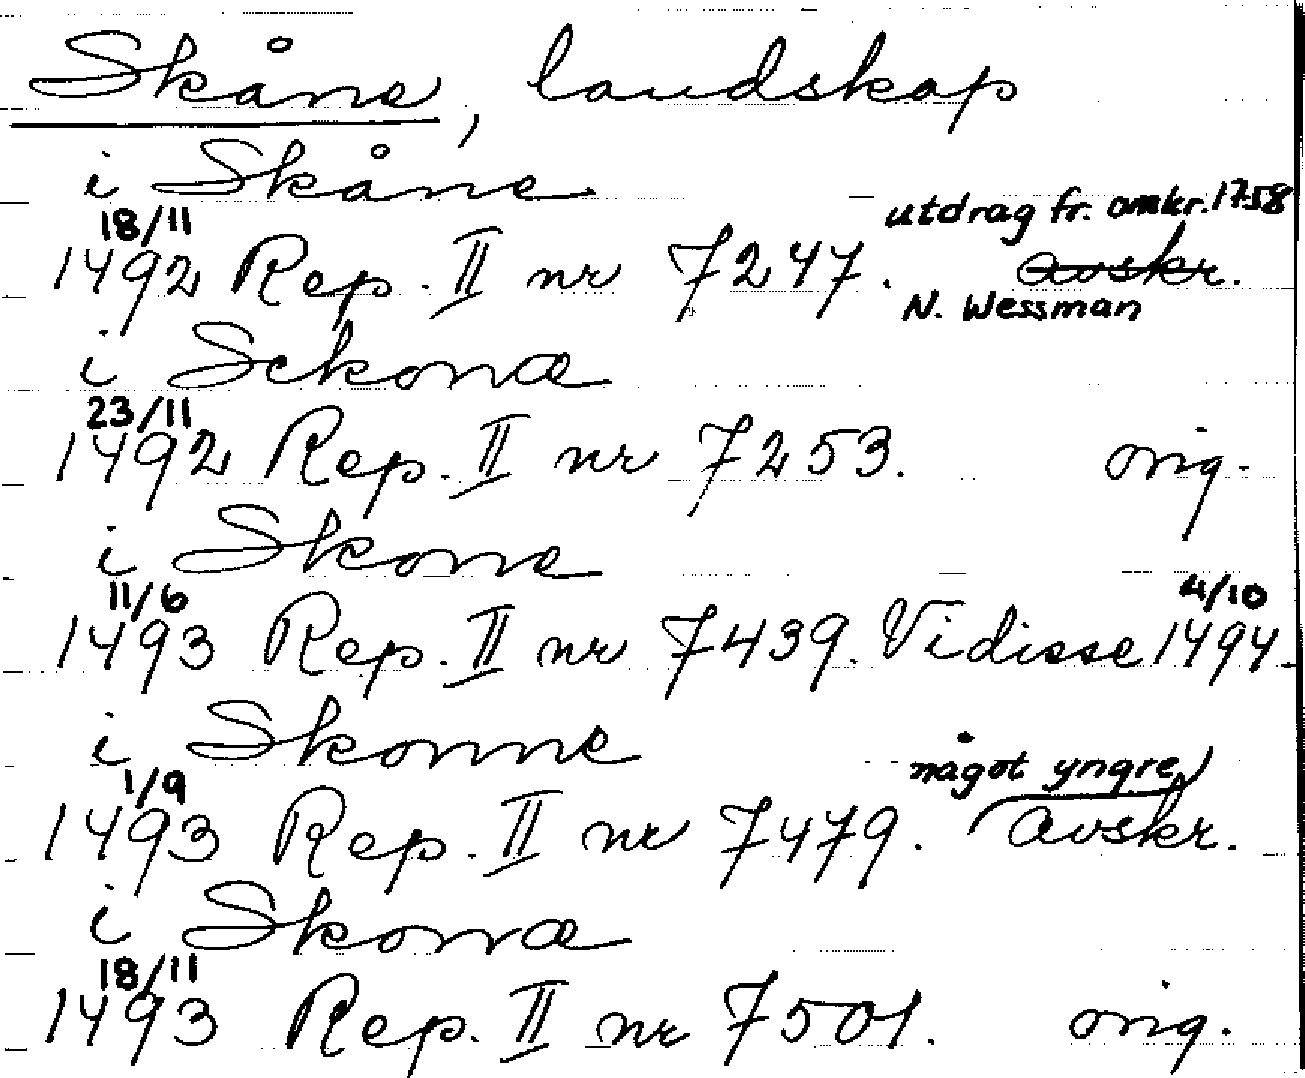 Skåne, landskap
i Skåne
18/11 utdrag fr. omkr. 1758
1492 Rep. II nr 7247. avskr.
N. Wessman
i Sckonæ
23/11
1492 Rep. II nr 7253. orig.
i Skone
11/6 4/10
1493 Rep. II nr 7439. Vidisse 1494.
i Skonne
1/9 något yngre
1493 Rep. II nr 7479. avskr.
i Skonæ
18/11
1493 Rep. II nr 7501. orig.